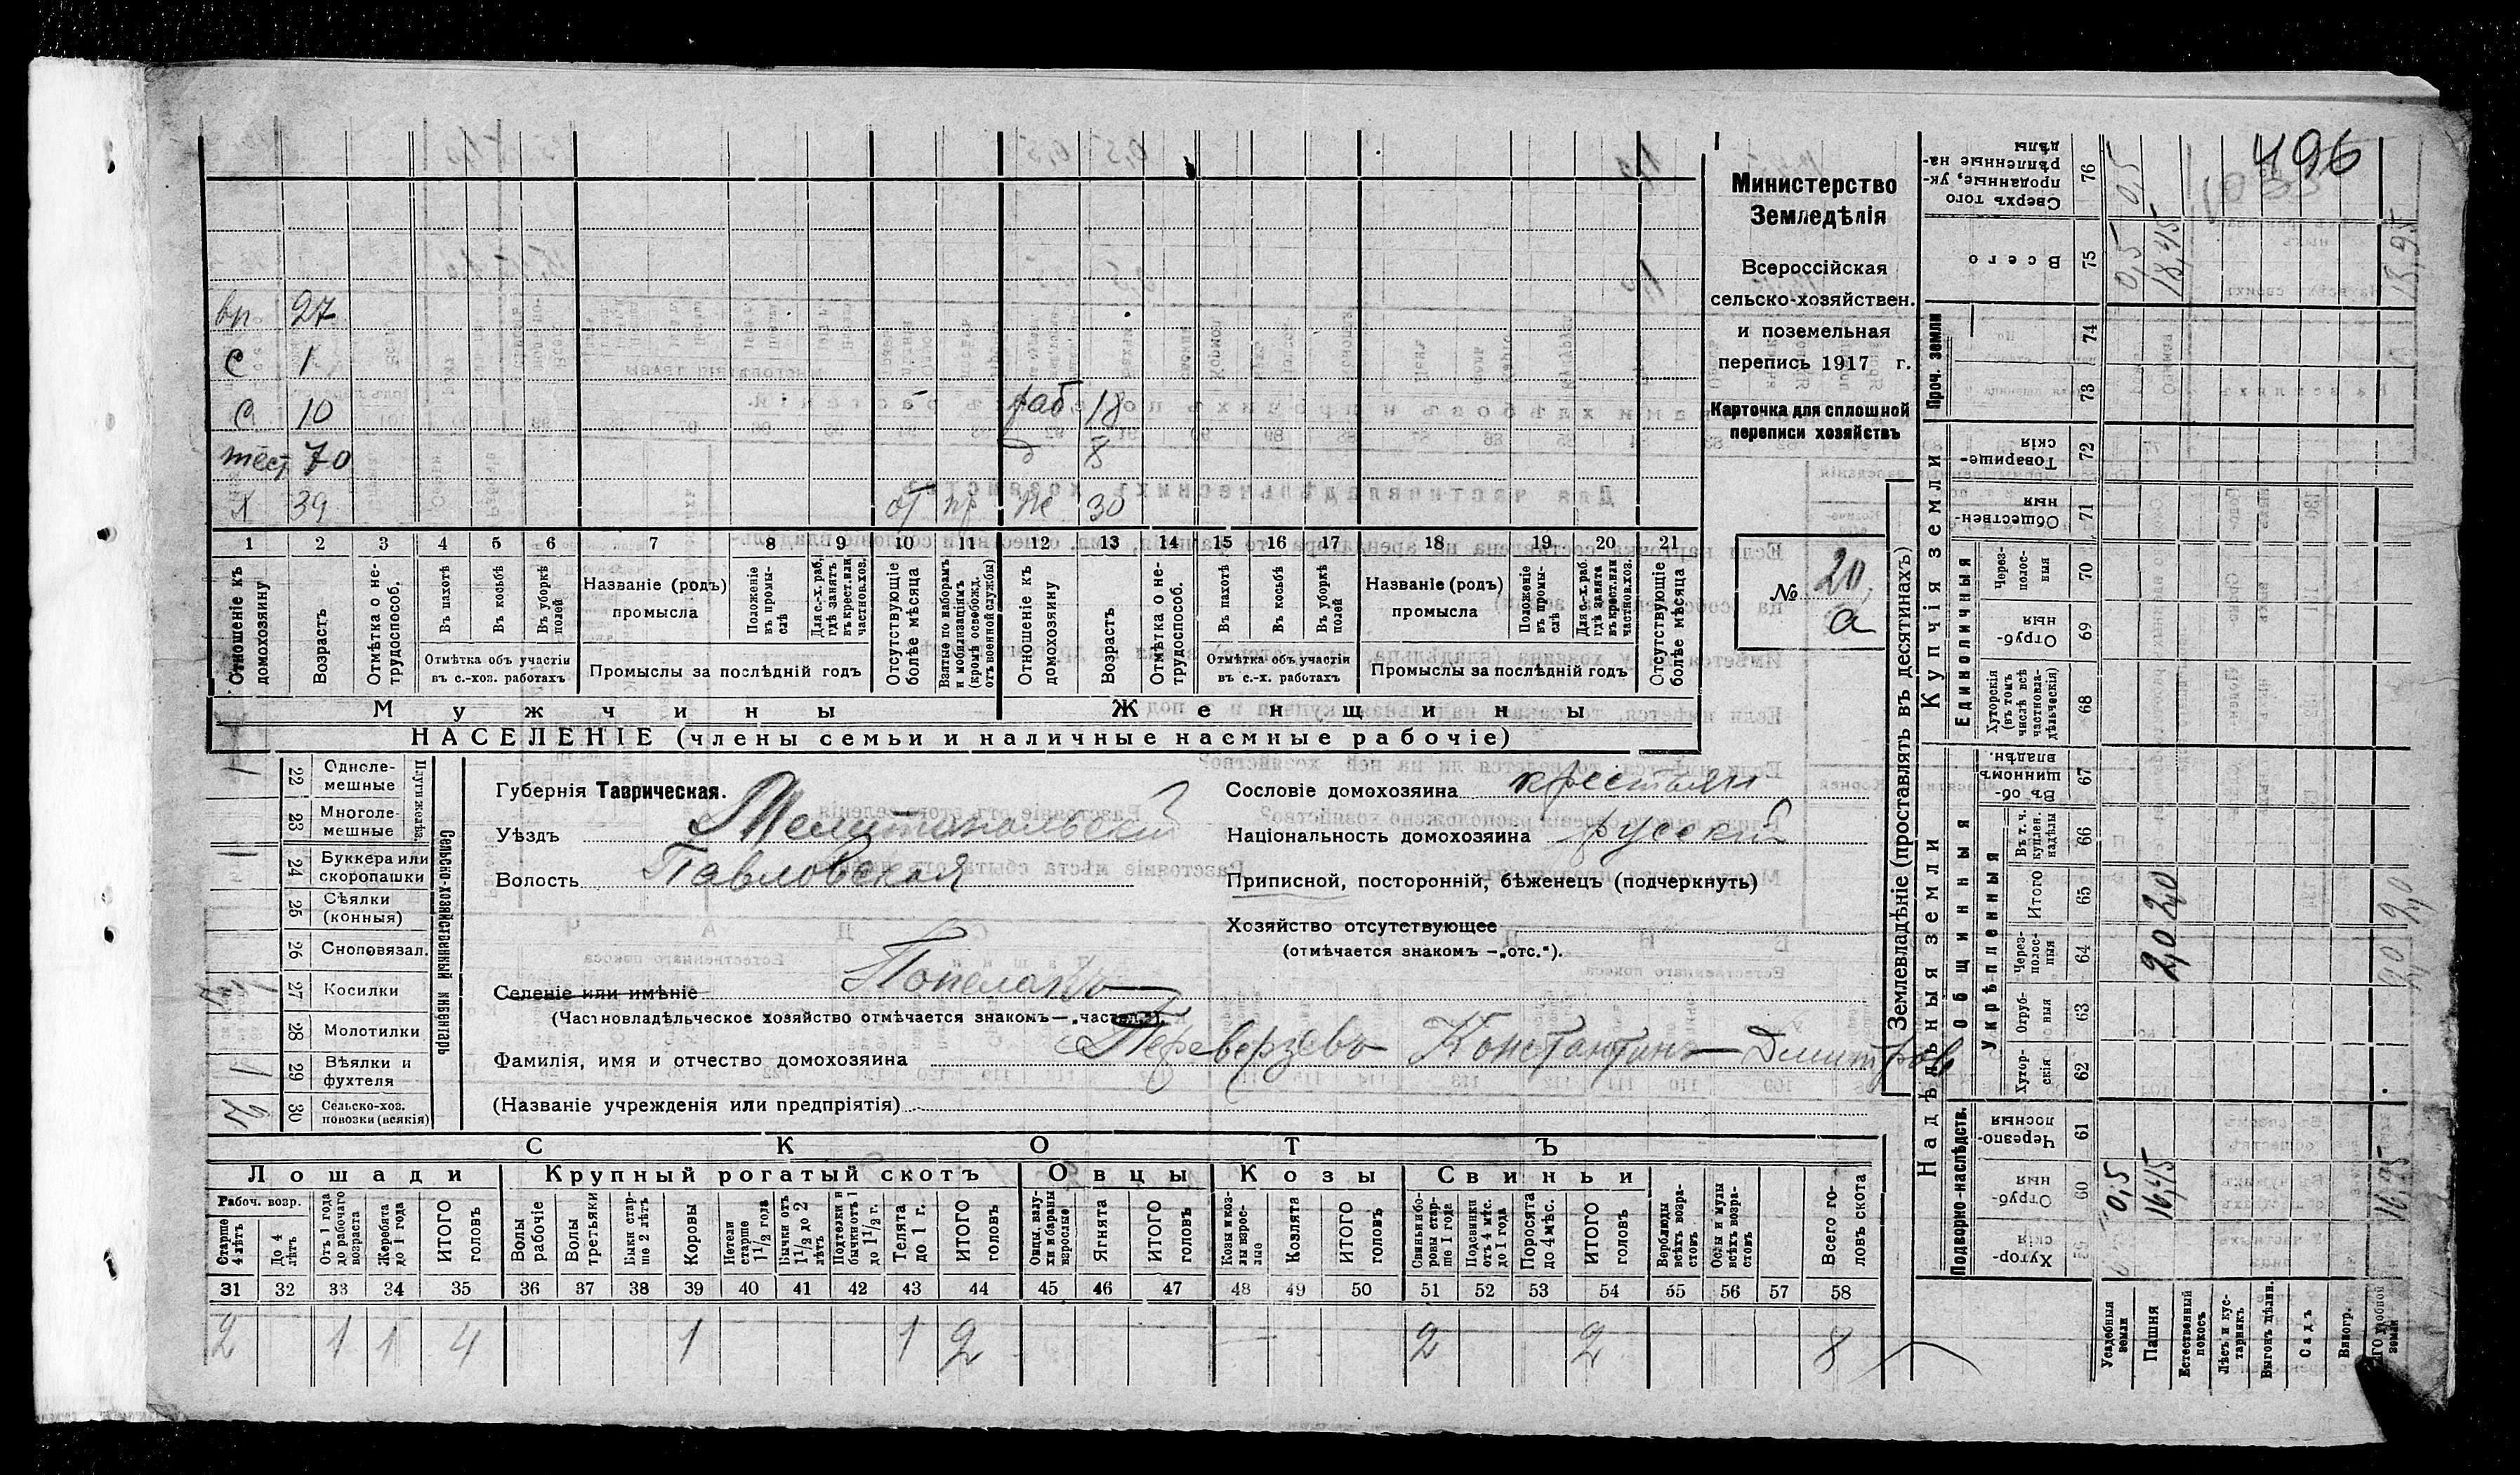 496
Министерство
Земледѣлія
Всероссійская
сельско-хозяйствен.
и поземельная
перепись 1917 г.
Карточка для сплошной
переписи хозяйствъ
№ 20
а
вп 27
с 1
с 10 раб. 18
тест 70 д 8
х 39 от пр же 30
1 2 3 4 5 6 7 8 9 10 11 12 13 14 15 16 17 18 19 20 21
Отношеніе къ домохозяину
Возрастъ
Отмѣтка о не-трудоспособ.
Въ пахотѣ
Въ косьбѣ
Въ уборкѣ полей
Отмѣтка объ участіи въ с.-хоз. работахъ
Названіе (родъ) промысла
Положеніе въ промы-слѣ
Для с.-х. раб. гдѣ занятъ въ крест. или частнов. хоз.
Промыслы за послѣдній годъ
Отсутствующіе болѣе мѣсяца
Взятые по наборамъ и мобилизаціямъ (кромѣ освобожд. отъ военной службы)
Отношеніе къ домохозяину
Возрастъ
Отмѣтка о не-трудоспособ.
Въ пахотѣ
Въ косьбѣ
Въ уборкѣ полей
Отмѣтка объ участіи въ с.-х. работахъ
Названіе (родъ) промысла
Положеніе въ промы-слѣ
Для с.-х. раб. гдѣ занята въ крест. или частнов. хоз.
Промыслы за послѣдній годъ
Отсутствующіе болѣе мѣсяца
Мужчины Женщины
НАСЕЛЕНІЕ (члены семьи и наличные наемные рабочіе)
Сельско-хозяйственный инвентарь
22 Одноле-мешные
23 Многоле-мешные
24 Буккера или скоропашки
25 Сѣялки (конныя)
26 Сноповязал.
27 Косилки
28 Молотилки
29 Вѣялки и фухтеля
30 Сельско-хоз. повозки (всякія)
Губернія Таврическая.
Уѣздъ Мелитопольский
Волость Павловская
Селеніе или имѣніе
(Частновладѣльческое хозяйство отмѣчается знакомъ—„част.")
Фамилія, имя и отчество домохозяина Переверзевъ Константинъ Дмитров
(Названіе учрежденія или предпріятія)
Сословіе домохозяина крестьян
Національность домохозяина русский
Приписной, посторонній, бѣженецъ (подчеркнуть)
Хозяйство отсутствующее
(отмѣчается знакомъ —„отс.").
СКОТЪ
Лошади Крупный рогатый скотъ Овцы Козы Свиньи
Рабоч. возр.
Старше 4 лѣтъ
До 4 лѣтъ
Отъ 1 года до рабочаго возраста
Жеребята до 1 года
ИТОГО головъ
Волы рабочіе
Волы третьяки
Быки стар-ше 2 лѣтъ
Коровы
Нетели старше 1 1/2 года
Бычки отъ 1 1/2 до 2 лѣтъ
Подтелки и бычки отъ 1 до 1 1/2 г.
Телята до 1 г.
ИТОГО головъ
Овцы, валу-хи и бараны взрослые
Ягнята
ИТОГО головъ
Козы и коз-лы взрос-лые
Козлята
ИТОГО головъ
Свиньи бо-ровы стар-ше 1 года
Подсвинки отъ 4 мѣс. до 1 года
Поросята до 4 мѣс.
ИТОГО головъ
Верблюды всѣхъ возра-стовъ
Ослы и мулы всѣхъ возра-стовъ
Всего го-ловъ скота
31 32 33 34 35 36 37 38 39 40 41 42 43 44 45 46 47 48 49 50 51 52 53 54 55 56 57 58
2 1 1 4 1 1 2 2 2 8
Землевладѣніе (проставлять въ десятинахъ)
Надѣльныя земли Купчія земли Проч. земли
Подворно-наслѣдств. Общинныя Единоличныя
Укрѣпленныя
Хутор-скія
60 Отруб-ныя
61 Черезпо-лосныя
62 Хутор-скія
63 Отруб-ныя
64 Через-полос-ныя
65 Итого
66 Въ т. ч. куплен. надѣлы
67 Въ об-щинномъ владѣн.
68 Хуторскія (въ томъ числѣ всѣ частновла-дѣльческія)
69 Отруб-ныя
70 Через-полос-ныя
71 Обществен-ныя
72 Товарище-скія
73
74
75 Всего
76 Сверхъ того проданные, ук-рѣпленные на-дѣлы
Усадебныя земли 0,5 0,5 0,5
Пашня 16,45 2,0 2,0 18,45
Естественный покосъ
Лѣсъ и кус-тарникъ
Выгонъ цѣлин.
Садъ
Виногр.
16,95 2,0 2,0 18,95